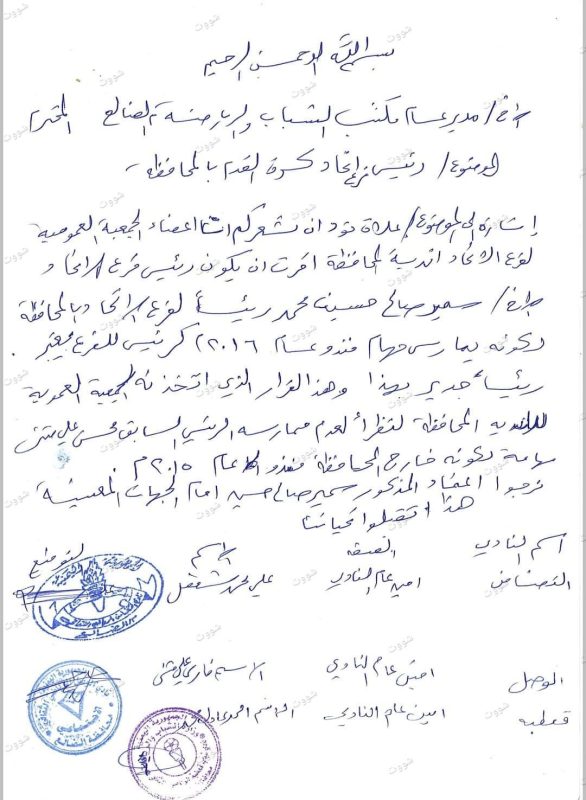 بسم الله الرحمن الرحيم
الأخ/ مدير عام مكتب الشباب والرياضة م الضالع المحترم
الموضوع/ رئيس فرع اتحاد كرة القدم بالمحافظة
إشارة إلى الموضوع أعلاه نود ان نشعركم اننا اعضاء الجمعية العمومية
لفرع الاتحاد اندية المحافظة اقرت ان يكون رئيس فرع الاتحاد
الاخ/ سمير صالح حسين محمد رئيساً لفرع الاتحاد بالمحافظة
لكونه يمارس مهام منذو عام ٢٠١٦ كرئيس للفرع معتبر
رئيساً جدير بهذا وهذا القرار الذي اتخذته الجمعية العمومية
لاندية المحافظة نظراً لعدم ممارسه الرئيس السابق محسن علي مثنى
مهامه لكونه خارج المحافظة منذو عام ٢٠١٥م
نرجوا اعتماد المذكور سمير صالح حسين امام الجهات المعنية
هذا وتقبلوا تحياتنا
اسم النادي الصفة الاسم التوقيع
امين عام النادي علي محمد
امين عام النادي الاسم علي مثنى
قعطبه امين عام النادي الاسم احمد عادل
شووت